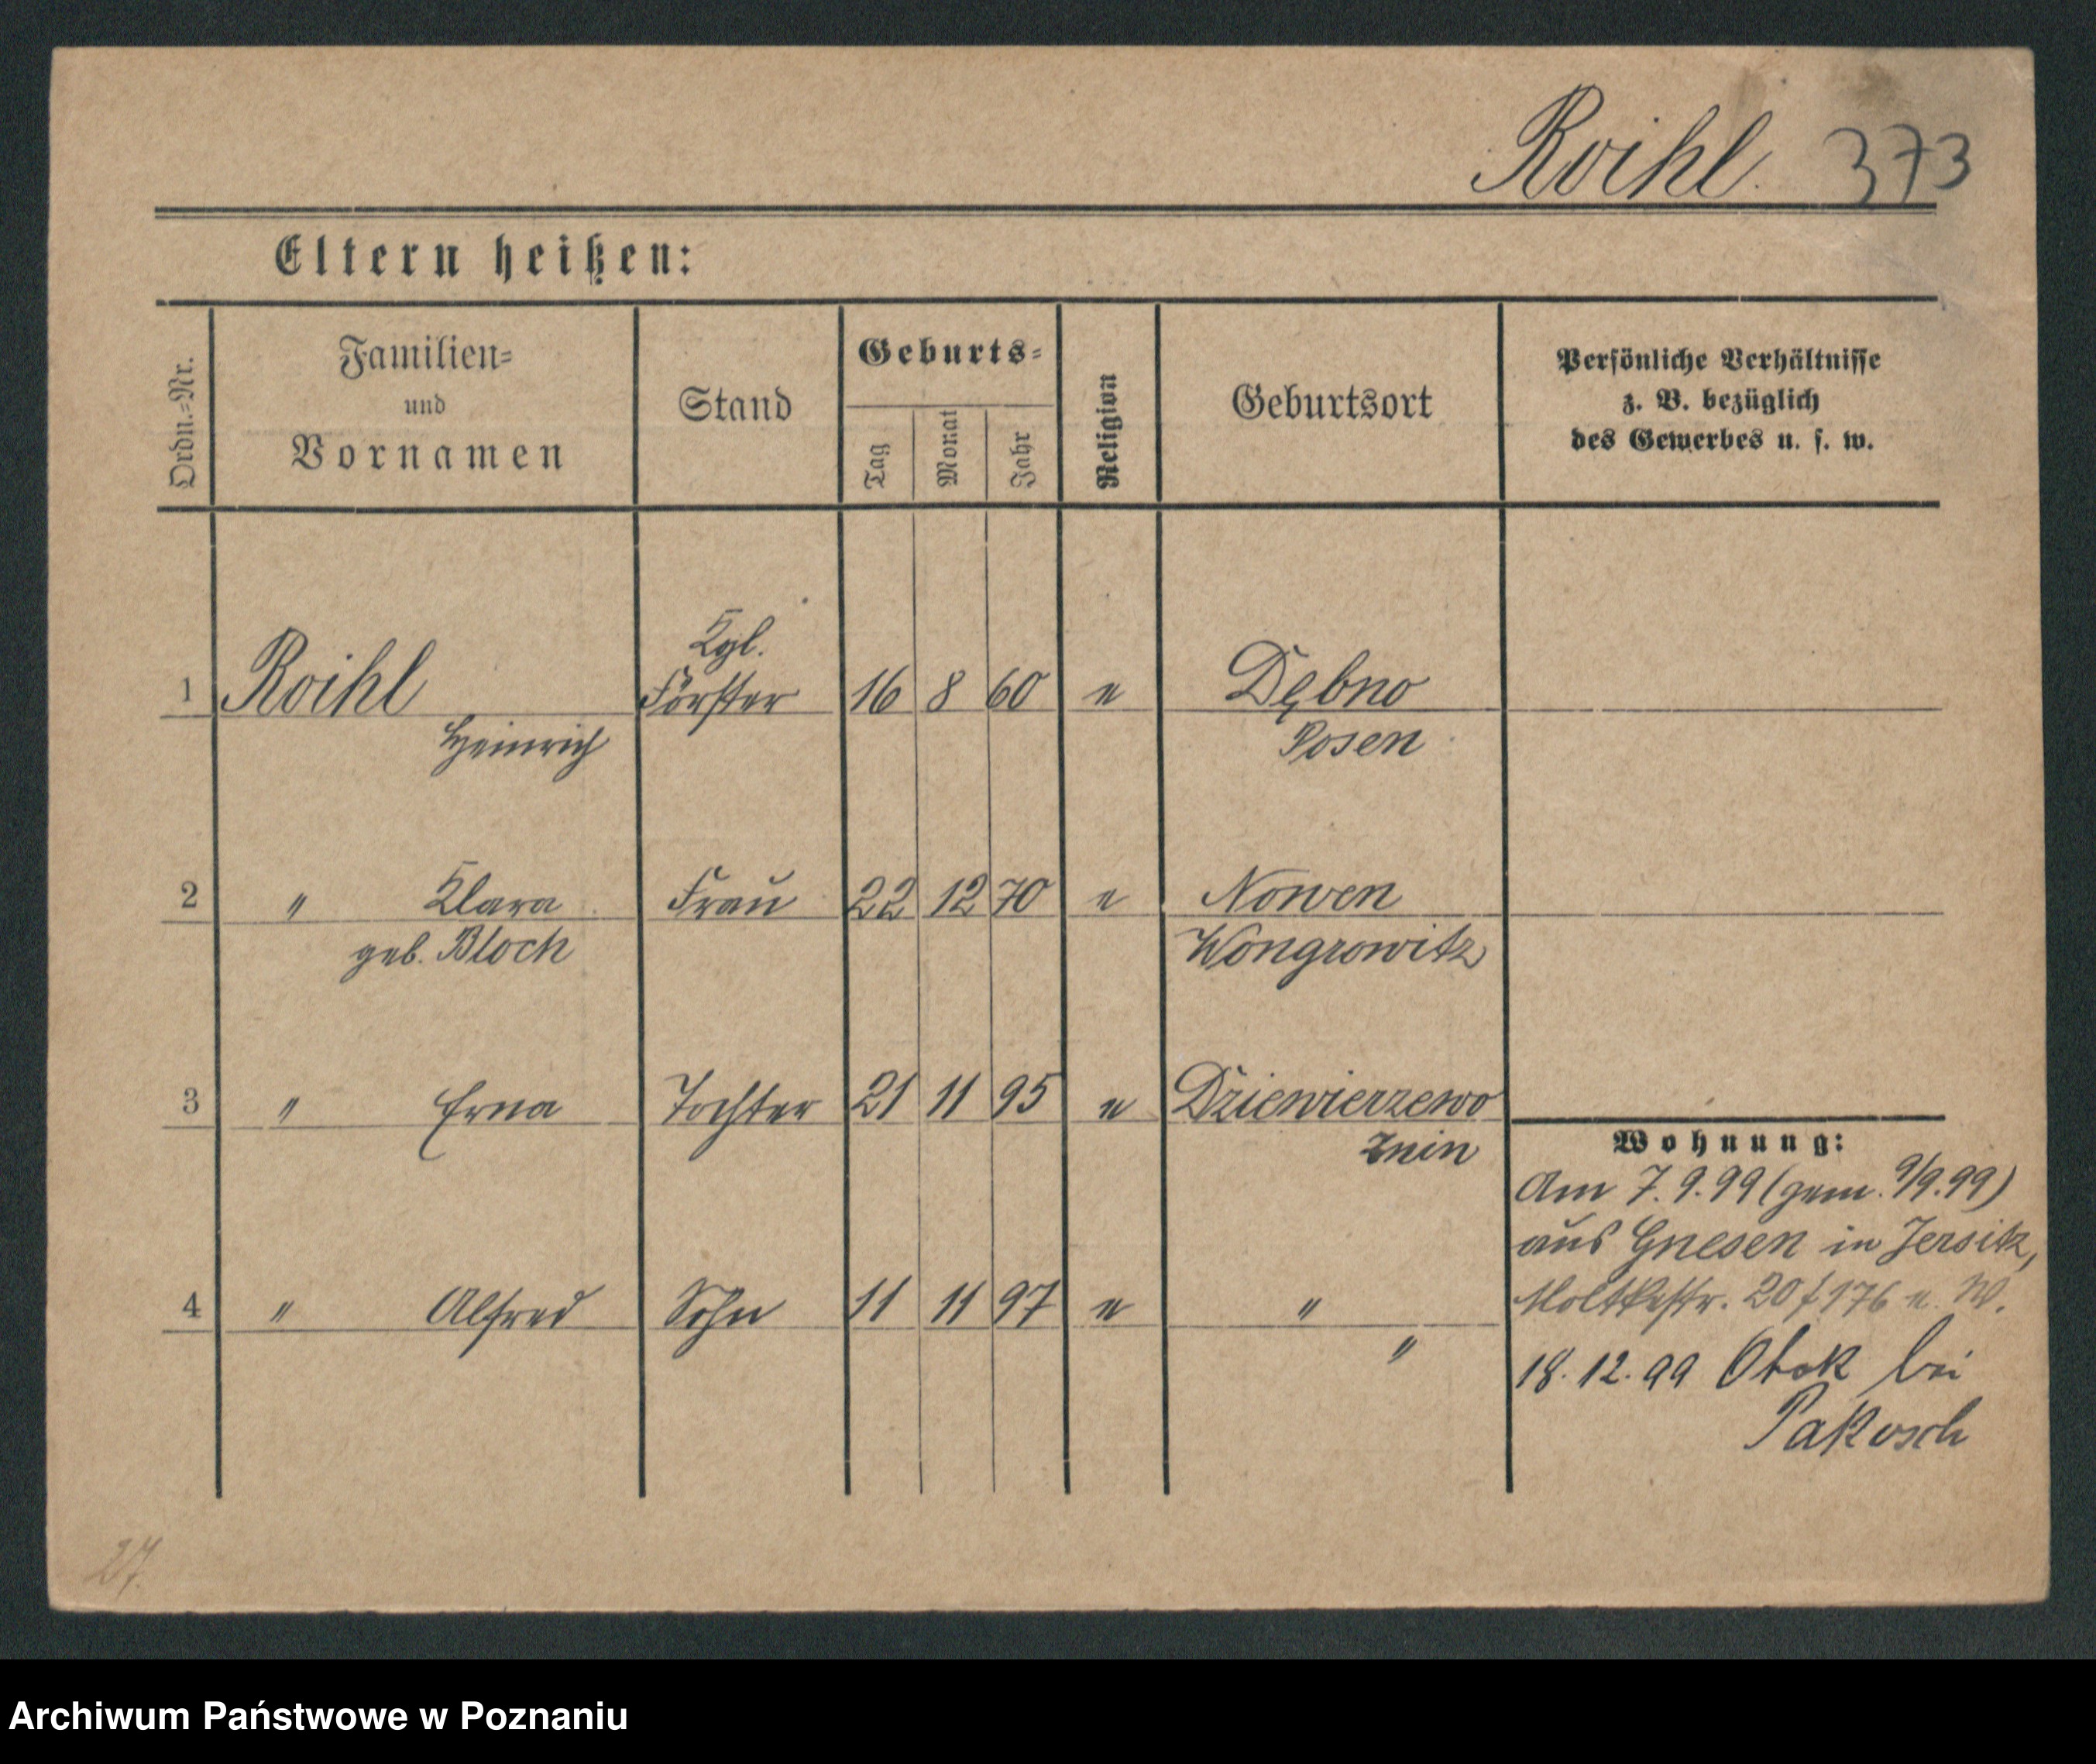 Roihl. 373
Eltern heißen:
Ordn.=Nr.
Familien=
und
Vornamen
Stand
Geburts=
Tag
Monat
Jahr
Religion
Geburtsort
Persönliche Verhältnisse
z. B. bezüglich
des Gewerbes u. s. w.
Kgl.
1 Roihl Förster 16 8 60 e Dębno
Heinrich Posen
2 " Klara Frau 22 12 70 e Nowen
geb. Bloch Wongrowitz
3 " Erna Tochter 21 11 95 e Dziewierzewo
Znin
4 " Alfred Sohn 11 11 97 e "
"
Wohnung:
Am 7.9.99 (gem. 9/9.99)
aus Gnesen in Jersitz,
Moltkestr. 20 f 176 n. W.
18.12.99 bei
Pakosch
27.
Archiwum Państwowe w Poznaniu